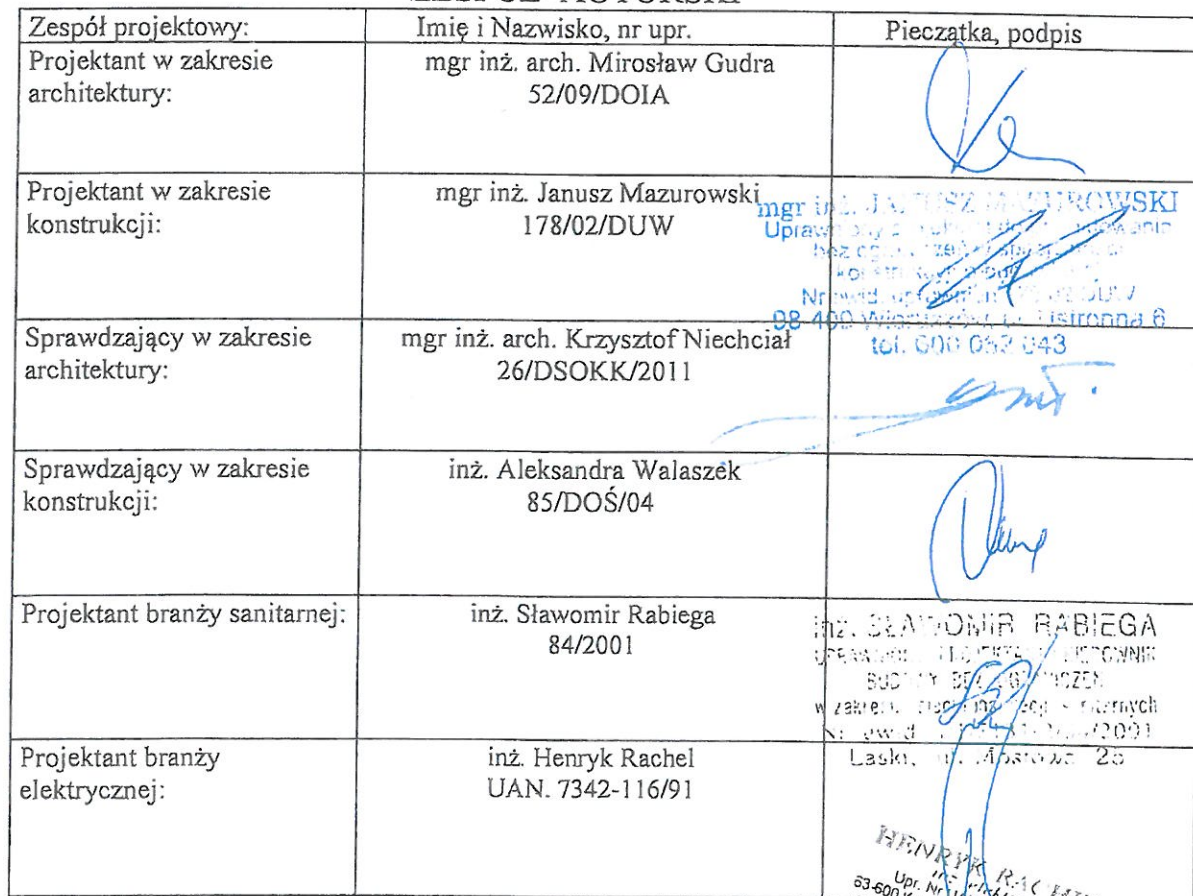 Zespół projektowy:
Imię i Nazwisko, nr upr.
Pieczątka, podpis
Projektant w zakresie
architektury:
mgr inż. arch. Mirosław Gudra
52/09/DOIA
Projektant w zakresie
konstrukcji:
mgr inż. Janusz Mazurowski
178/02/DUW
mgr inż. JANUSZ MAZUROWSKI
98-400 Ustronna 6
tel.
Sprawdzający w zakresie
architektury:
mgr inż. arch. Krzysztof Niechciał
26/DSOKK/2011
Sprawdzający w zakresie
konstrukcji:
inż. Aleksandra Walaszek
85/DOŚ/04
Projektant branży sanitarnej:
inż. Sławomir Rabiega
84/2001
inż. SŁAWOMIR RABIEGA
w zakresie
Laski, ul.
Projektant branży
elektrycznej:
inż. Henryk Rachel
UAN. 7342-116/91
HENRYK
63-600
Upr. Nr